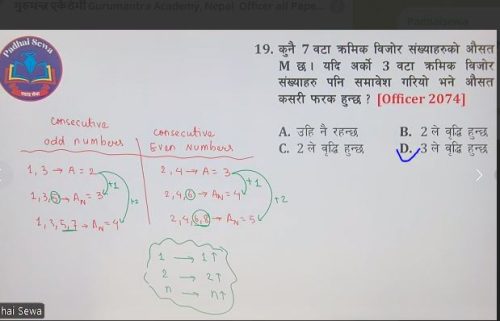 गुरुमन्त्र एकेडेमी Gurumantra Academy, Nepal Officer all Pape...
Padhaisewa
Padhai Sewa
19. कुनै 7 वटा क्रमिक बिजोर संख्याहरुको औसत
M छ। यदि अर्को 3 वटा क्रमिक बिजोर
संख्याहरु पनि समावेश गरियो भने औसत
कसरी फरक हुन्छ ? [Officer 2074]
A. उहि नै रहन्छ B. 2 ले वृद्धि हुन्छ
C. 2 ले वृद्धि हुन्छ D. 3 ले वृद्धि हुन्छ
consecutive
odd numbers
1, 3 → A = 2
+1
1, 3, 5 → AN = 3
+2
1, 3, 5, 7 → AN = 4
consecutive
Even Numbers
2, 4 → A = 3
+1
2, 4, 6 → AN = 4
+2
2, 4, 6, 8 → AN = 5
1 → 1↑
2 → 2↑
n → n↑
hai Sewa